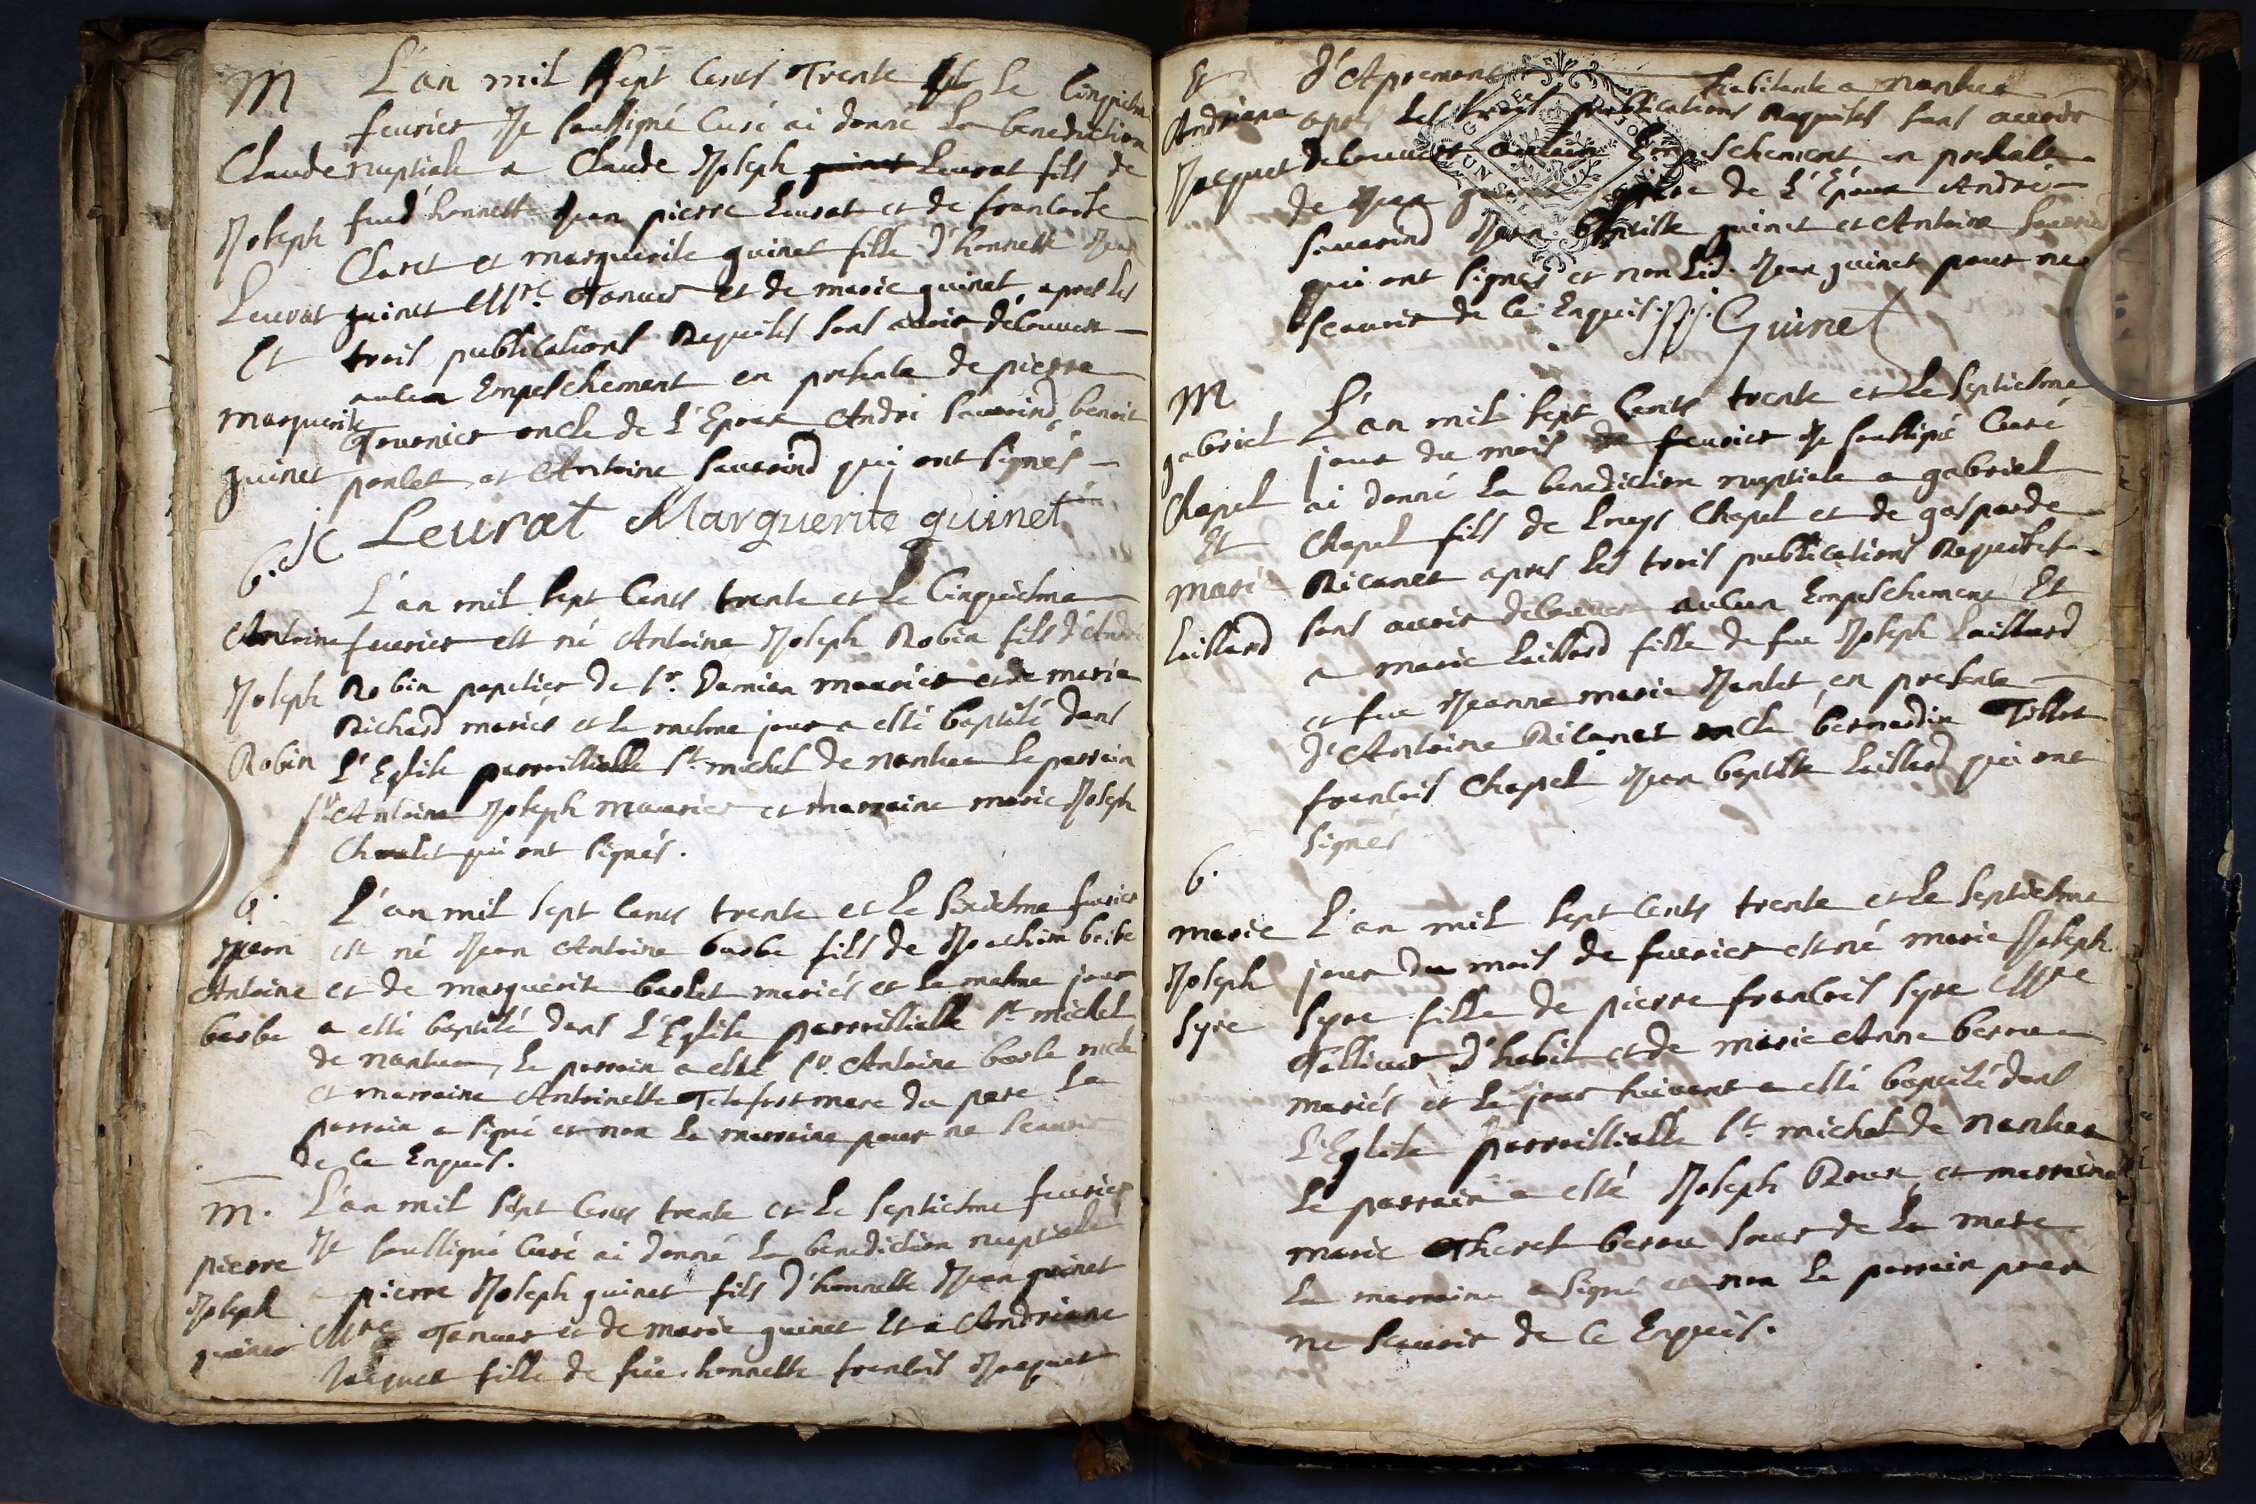 M
Claude
Joseph
Leurat
Et
marguerite
guinet
L'an mil sept Cents Trente et le Cinquiesme
feurier Je soussigné Curé ai donné La benediction
nuptiale a Claude Joseph guinet Leurat fils de
feu d'honneste Jean pierre Leurat et de francoise
Claret et marguerite guinet fille d'honneste Jean
guinet Mre. Tanneur et de marie guinet apres les
trois publications Requises sans auoir découuert
aucun Empeschement en presence de pierre
Tournier oncle de L'Epoux André Sauerind benoit
ponlet et Antoine Sauerind qui ont signés
JC Leurat Marguerite guinet
b.
Antoine
Joseph
Robin
L'an mil sept Cents trente et le Cinquiesme
feurier est né Antoine Joseph Robin fils d'André
Robin papetier de sr. Damien maurier et de marie
Richard mariés et le mesme jour a esté baptisé dans
L'Eglise parroissialle st. michel de nantua Le parrain
sr Antoine Joseph maurier et marraine marie Joseph
qui ont signés.
b.
Jean
Antoine
barbe
L'an mil sept Cents trente et le sixiesme feurier
est né Jean Antoine barbe fils de Joachim barbe
et de marguerite barlet mariés et le mesme jour
a esté baptisé dans L'Eglise parroissialle st. michel
de nantua, Le parrain a esté sr. Antoine barbe oncle
et marraine Antoinette mere du pere Le
parrain a signé et non La marraine pour ne scauoir
de ce Enquis.
m.
pierre
Joseph
guinet
L'an mil sept Cents trente et le septiesme feurier
Je soussigné Curé ai donné La benediction nuptiale
a pierre Joseph guinet fils d'honneste Jean guinet
Mre Tanneur et de marie guinet Et a Andriane
Jacquet fille de feu honneste francois Jacquet
Et
Andriane
Jacquet
d'Apremont habitante a nantua
apres Les trois publications Requises sans auoir
découuert aucun Empeschement en presence
de Jean guinet pere de L'Epoux André
Sauerind Jean baptiste guinet et Antoine Sauerind
qui ont signés et non Led. Jean guinet pour ne
scauoir de ce Enquis. Guinet
M
gabriel
Chapel
Et
marie
Laillard
L'an mil sept Cents trente et le septiesme
jour du mois de feurier Je soussigné Curé
ai donné La benediction nuptiale a gabriel
Chapel fils de Louys Chapel et de gasparde
Ricanet apres les trois publications Requises
sans auoir découuert aucun Empeschement Et
a marie Laillard fille de feu Joseph Laillard
et feue Jeanne marie Janlet, en presence
d'Antoine Ricanet oncle bernardin
francois Chapel Jean baptiste Laillard qui ont
signés
b.
marie
Joseph
Syre
L'an mil sept Cents trente et le septiesme
jour du mois de feurier est né marie Joseph
Syre fille de pierre francois Syre Mre
Tallieur d'habit et de marie Anne
mariés et le jour suiuant a esté baptisé dans
L'Eglise parroissialle st. michel de nantua
Le parrain a esté Joseph Roux, et marraine
marie Therese soeur de La mere
La marraine a signé et non Le parrain pour
ne scauoir de ce Enquis.